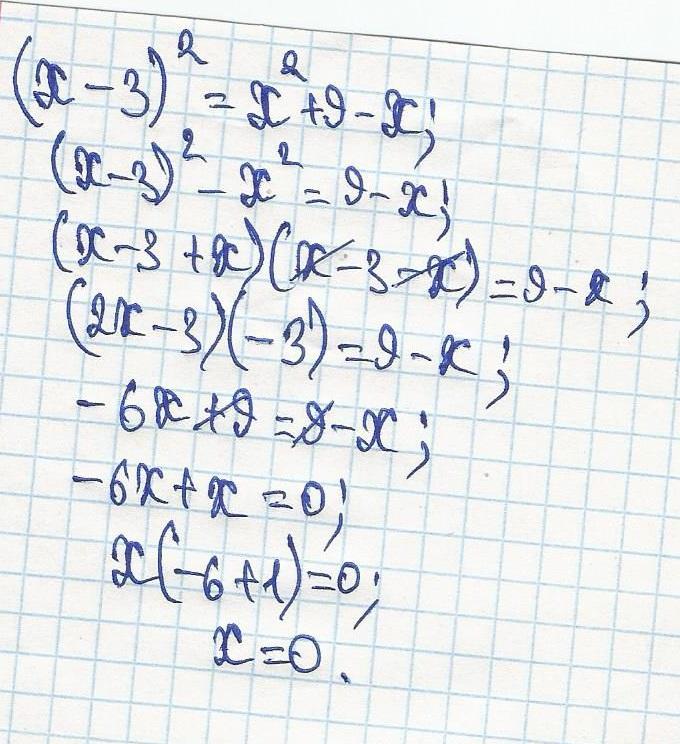 (x-3)² = x²+9-x;
(x-3)² - x² = 9-x;
(x-3+x)(x-3-x) = 9-x;
(2x-3)(-3) = 9-x;
-6x+9 = 9-x;
-6x+x = 0;
x(-6+1) = 0;
x = 0.